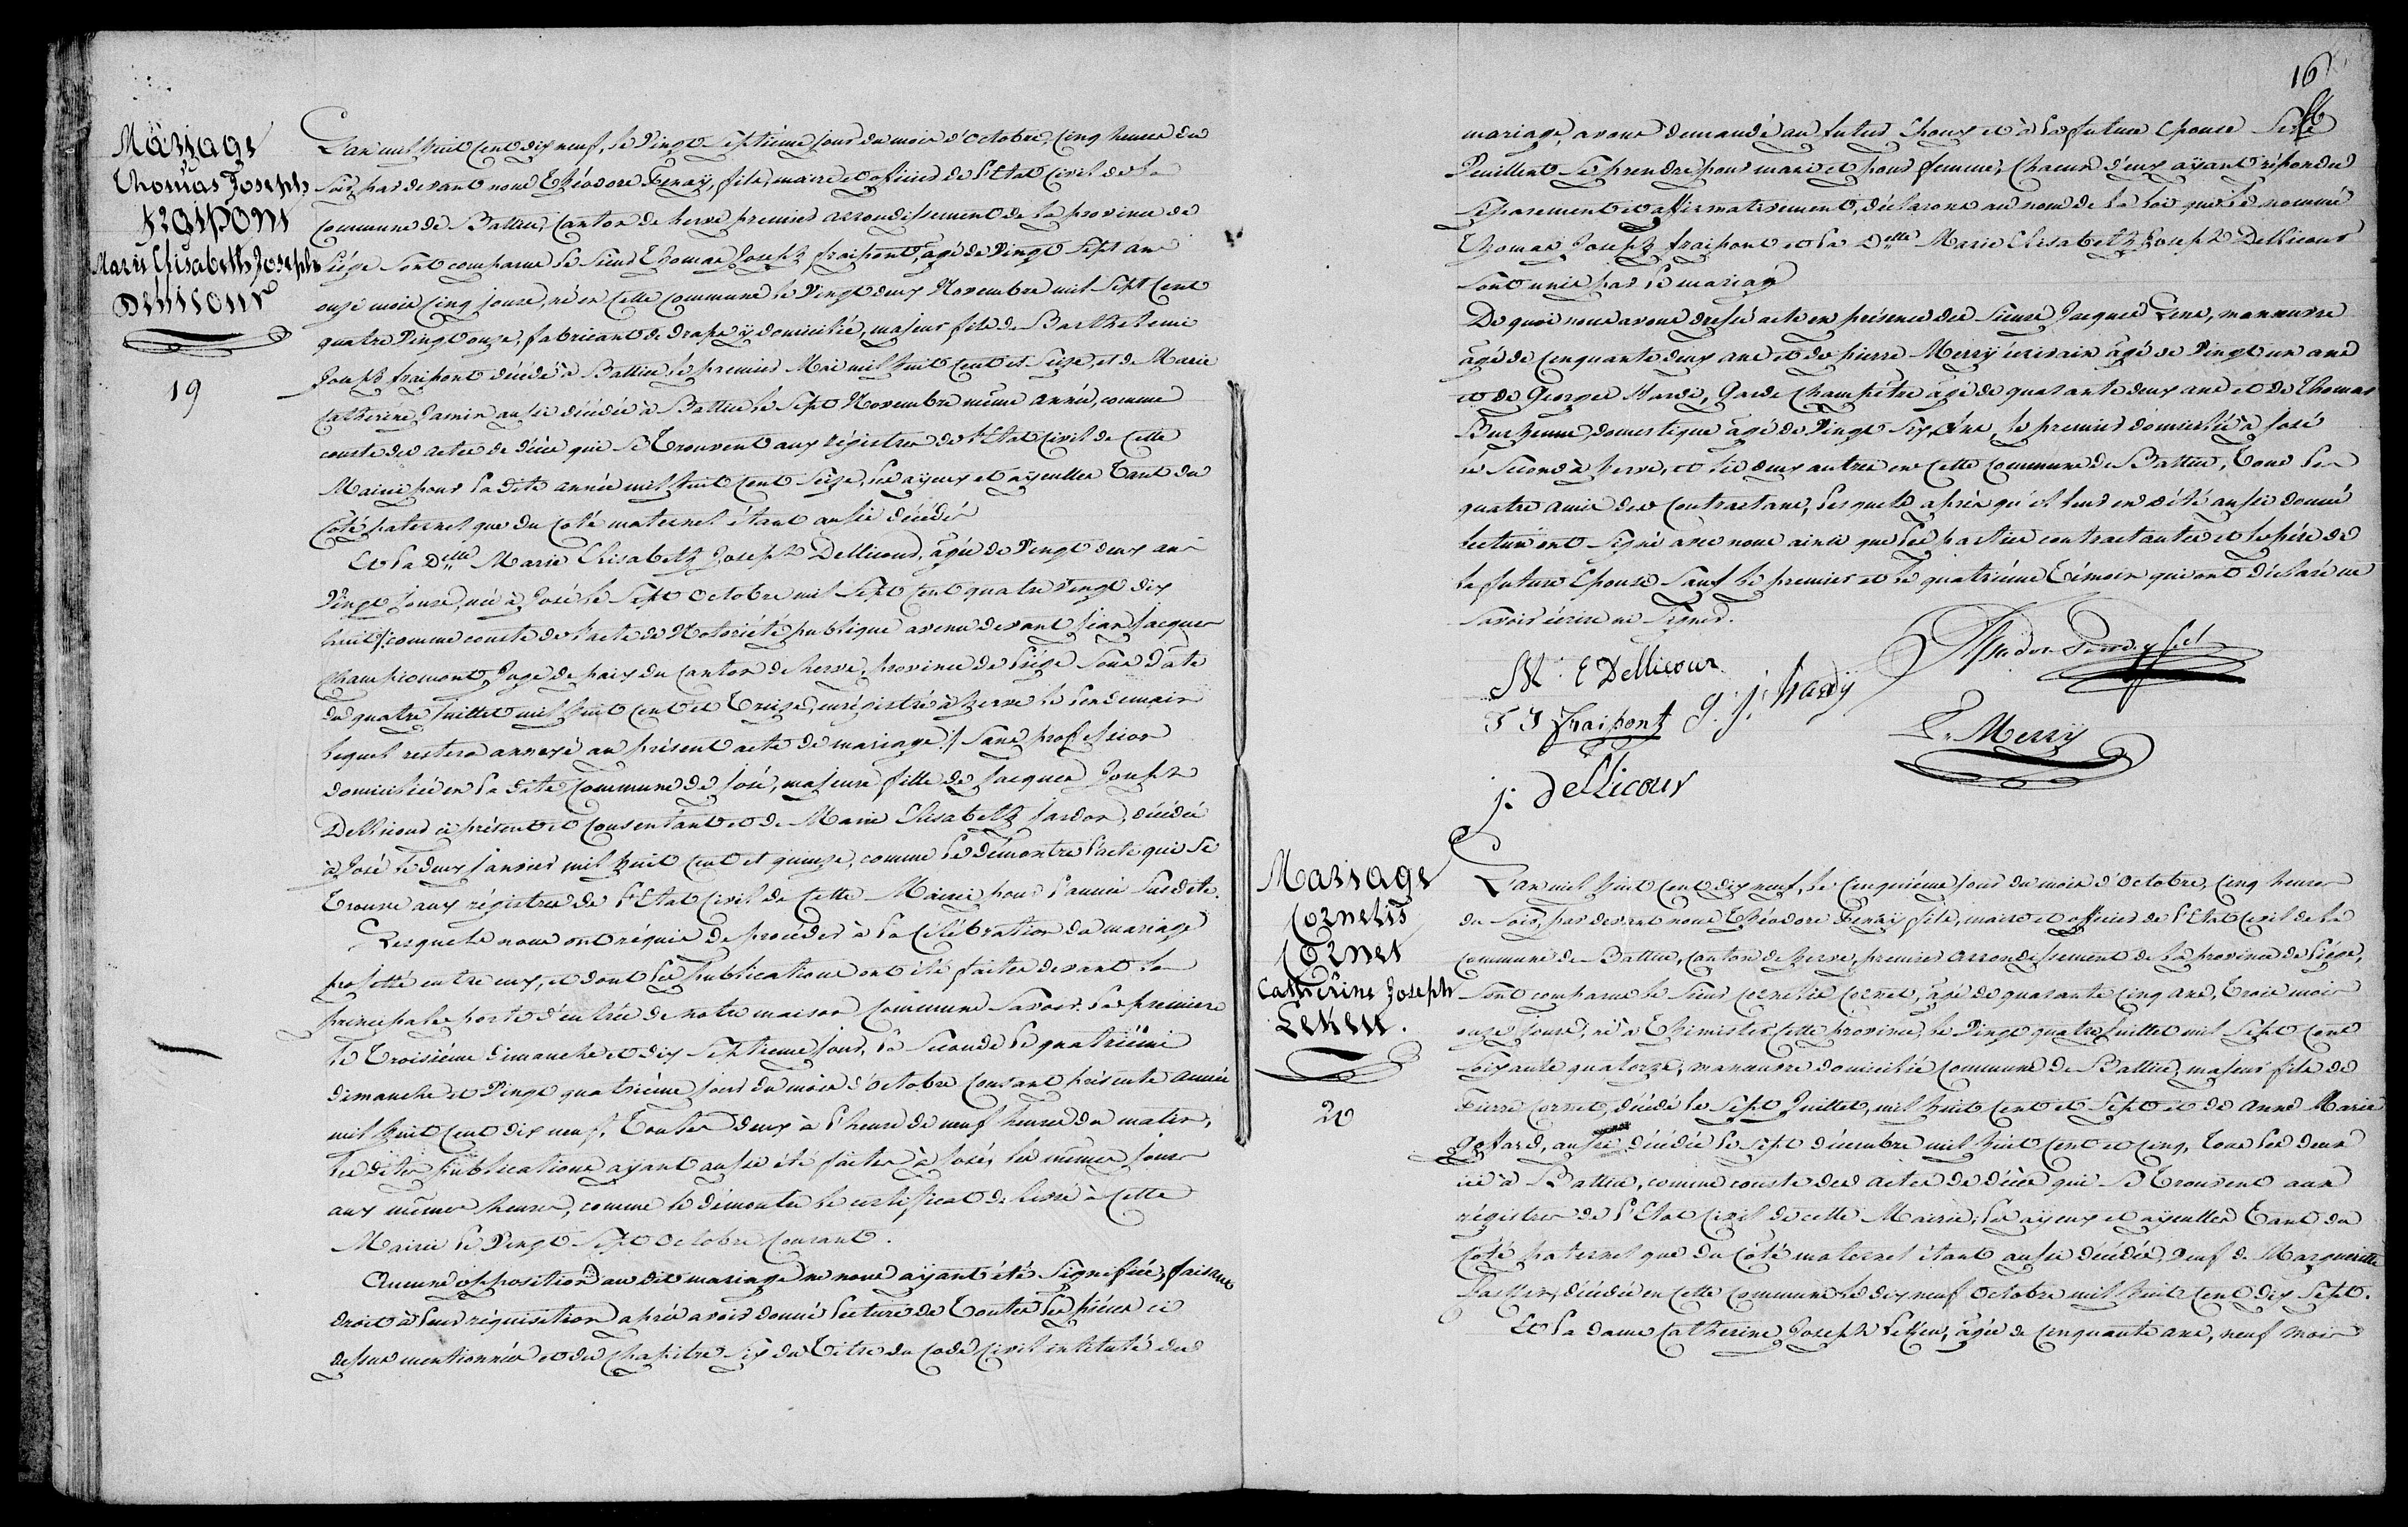 Mariage
Thomas Joseph
fraipont
Marie Elisabeth Joseph
Dellicour
19
L'an mil huit cent dix neuf, le vingt septième jour du mois d'octobre, cinq heures du
soir, par devant nous Théodore fils, maire et officier de l'Etat Civil de la
commune de Battice, canton de herve premier arrondissement de la province de
Liége sont comparus le Sieur Thomas Joseph fraipont, agé de vingt sept ans
onze mois cinq jours, né en cette commune le vingt deux Novembre mil sept cent
quatre vingt onze, fabricant de draps y domicilié, majeur fils de Barthelemi
Joseph fraipont décédé à Battice le premier Mai mil huit cent et Seize, et de Marie
Catherine Jamin aussi décédée à Battice le Sept Novembre même année, comme
conste des actes de décès qui se trouvent aux régistres de l'Etat Civil de cette
Mairie pour la dite année mil huit cent seize, les ayeux et ayeulles tant du
coté paternel que du coté maternel étant aussi décédés
Et la Delle Marie Elisabeth Joseph Dellicour, agée de vingt deux ans
vingt jours, née à José le Sept Octobre mil Sept cent quatre vingt dix
huit /: comme conste de l'acte de Notoriété publique avenu devant Jean Jacques
Championont, Juge de paix du canton de herve, province de Liége Sous date
du quatre Juillet mil huit cent et treize, enrégistré à herve le lendemain
lequel restera annexé au présent acte de mariage :/ sans profession
domiciliée en la dite commune de José, majeure fille de Jacques Joseph
Dellicour ci présent et consentant et de Marie Elisabeth Jardon, décédée
à José le deux Janvier mil huit cent et quinze, comme le démontre l'acte qui se
trouve aux régistres de l'Etat Civil de cette Mairie pour l'année susdite.
Lesquels nous ont réquis de procéder à la célébration du mariage
projetté entre eux, et dont les publications ont été faites devant la
principale porte d'entrée de notre maison commune savoir: la première
le troisième dimanche et dix septieme jour, la seconde le quatrième
dimanche et vingt quatrième jour du mois d'octobre courant présente année
mil huit cent dix neuf, toutes deux à l'heure de neuf heures du matin,
les dites publications ayant aussi été faites à José, les mêmes jours
aux mêmes heures, comme le démontre le certificat delivré à cette
Mairie le vingt Sept Octobre courant.
Aucune opposition au dit mariage ne nous ayant été signifiée, faisant
droit à leur réquisition après avoir donné lecture de toutes les pièces ci
dessus mentionnées et du chapitre six du titre du code civil intitulé du
16
mariage, avons demandé au futur Epoux et à la future Epouse s'ils
veuillent se prendre pour mari et pour femme, chacun d'eux ayant répondu
séparement et affirmativement, déclarons au nom de la loi que le nommé
Thomas Joseph fraipont et la Delle Marie Elisabeth Joseph Dellicour
sont unis par le mariage
De quoi nous avons dressé acte en présence des Sieurs Jacques Lens, manœuvre
agé de cinquante deux ans et de pierre Merry écrivain agé de vingt un ans
et de George Hardi, Garde Champêtre agé de quarante deux ans et de Thomas
domestique agé de vingt six ans, le premier domicilié à José
le second à herve, et les deux autres en cette commune de Battice, tous les
quatre amis des contractans, lesquels après qu'il leur en a été aussi donné
lecture ont signé avec nous ainsi que les parties contractantes et le père de
la future Epouse sauf le premier et le quatrième témoin qui ont déclaré ne
savoir écrire ne signer.
M. E Dellicour
T J Fraipont g. j. hardÿ
P. Merry
j: dellicour
Mariage
Cornelis
Cornet
Catherine Joseph
Lekeu.
20
L'an mil huit cent dix neuf, le cinquième jour du mois d'Octobre, cinq heures
du soir, par devant nous Théodore fils, maire et officier de l'Etat Civil de la
commune de Battice, canton de herve, premier arrondissement de la province de Liége,
sont comparus le Sieur Cornelis Cornet, agé de quarante cinq ans, trois mois
onze jours, né à Thimister cette province, le vingt quatre Juillet mil Sept cent
soixante quatorze, manœuvre domicilié commune de Battice, majeur fils de
Pierre Cornet, décédé le Sept Juillet, mil huit cent et Sept et de Anne Marie
Goffard, aussi décédée le sept décembre mil huit cent et cinq, tous les deux
ici à Battice, comme conste des actes de décès qui se trouvent aux
régistres de l'Etat Civil de cette Mairie, les ayeux et ayeulles tant du
coté paternel que du coté maternel étant aussi décédés, veuf de Margueritte
décédée en cette commune le dix neuf Octobre mil huit cent dix Sept.
Et la dame Catherine Joseph Lekeu, agée de cinquante ans, neuf mois